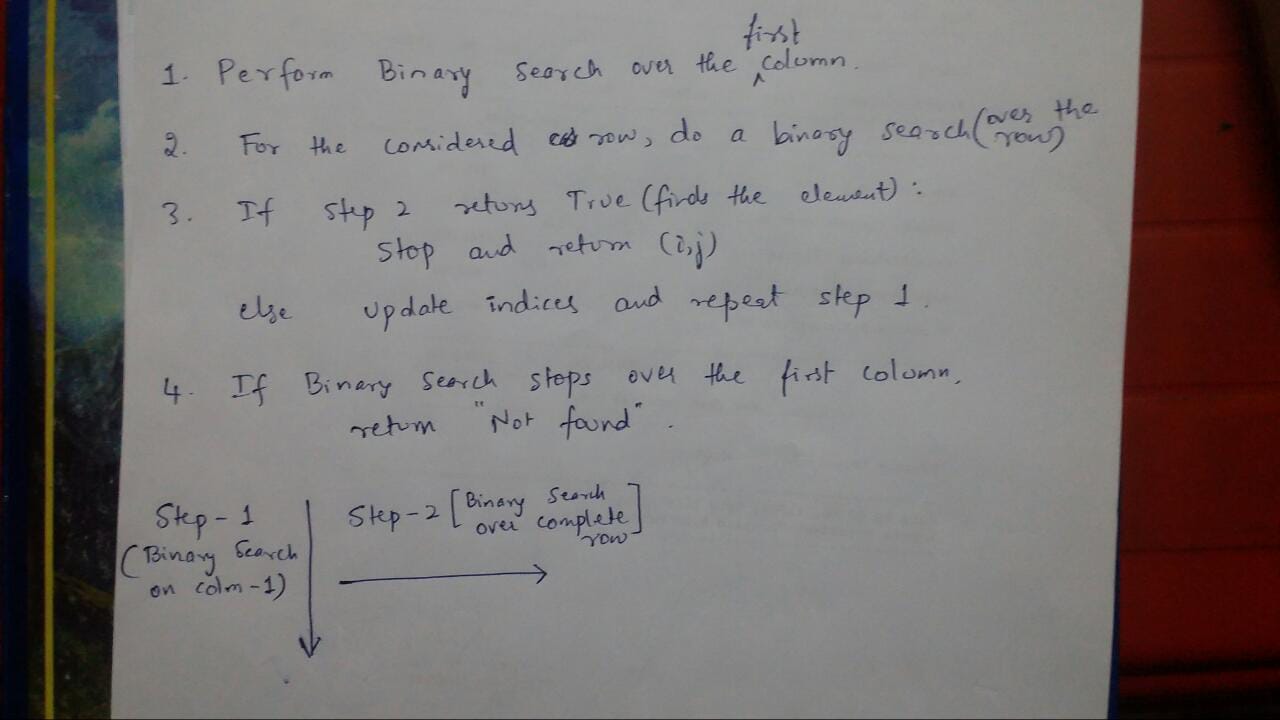 1. Perform Binary Search over the first column.
2. For the considered row, do a binary search (over the row)
3. If step 2 returns True (finds the element) :
Stop and return (i,j)
else update indices and repeat step 1.
4. If Binary Search stops over the first column,
return "Not found".
Step-1
(Binary Search
on colm-1)
Step-2 [Binary Search
over complete
row]